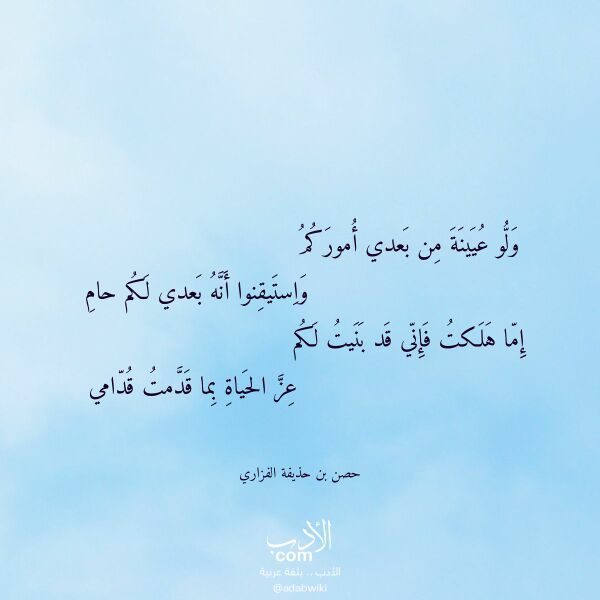 وَلُّو عُيَينَةَ مِن بَعدي أُمورَكُمُ
وَاِستَيقِنوا أَنَّهُ بَعدي لَكُم حامِ
إِمّا هَلَكتُ فَإِنّي قَد بَنَيتُ لَكُم
عِزَّ الحَياةِ بِما قَدَّمتُ قُدّامي
حصن بن حذيفة الفزاري
الأدب
com
الأدب .. بلغة عربية
@adabwiki